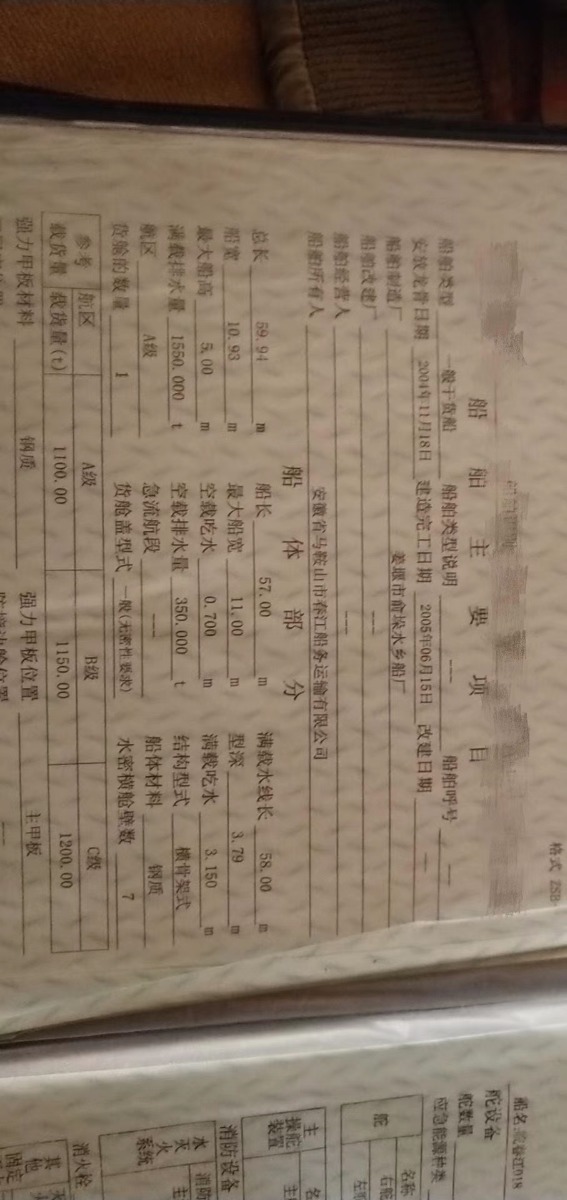 格式 ZSB-
船舶主要项目
船舶类型 一般干货船 船舶类型说明 —— 船舶呼号 ——
安放龙骨日期 2004年11月18日 建造完工日期 2005年06月15日 改建日期 —
船舶制造厂 姜堰市俞垛水乡船厂
船舶改建厂 ——
船舶经营人 ——
船舶所有人 安徽省马鞍山市春江船务运输有限公司
船体部分
总长 59.94 m 船长 57.00 m 满载水线长 58.00 m
船宽 10.93 m 最大船宽 11.00 m 型深 3.79 m
最大船高 5.00 m 空载吃水 0.700 m 满载吃水 3.150 m
满载排水量 1550.000 t 空载排水量 350.000 t 结构型式 横骨架式
航区 A级 急流航段 —— 船体材料 钢质
货舱的数量 1 货舱盖型式 一般(无密性要求) 水密横舱壁数 7
参考 航区 A级 B级 C级
载货量 载货量(t) 1100.00 1150.00 1200.00
强力甲板材料 钢质 强力甲板位置 主甲板
船名
舵设备
舵数量
应急能源种类
舵 名称
主操舵装置
消防设备
水灭火系统
消火栓
其他